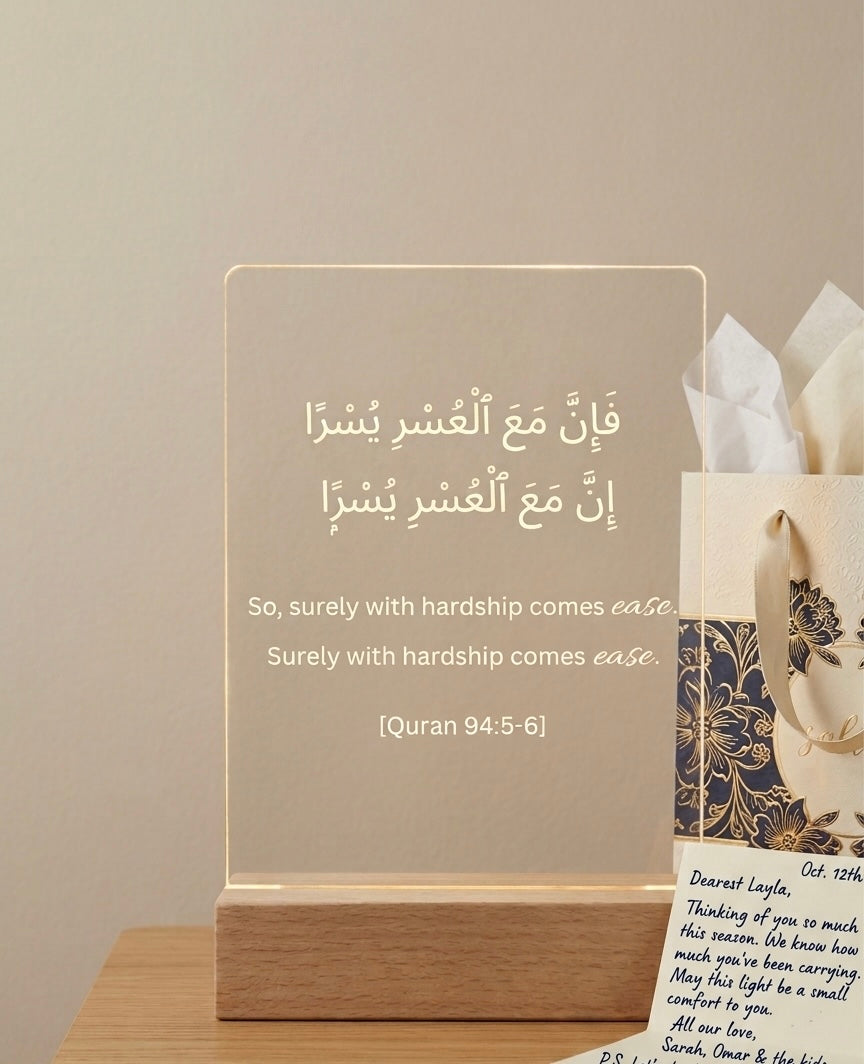 فَإِنَّ مَعَ ٱلْعُسْرِ يُسْرًا
إِنَّ مَعَ ٱلْعُسْرِ يُسْرًۭا
So, surely with hardship comes ease.
Surely with hardship comes ease.
[Quran 94:5-6]
Oct. 12th
Dearest Layla,
Thinking of you so much
this season. We know how
much you've been carrying.
May this light be a small
comfort to you.
All our love,
Sarah, Omar & the kids
P.S.